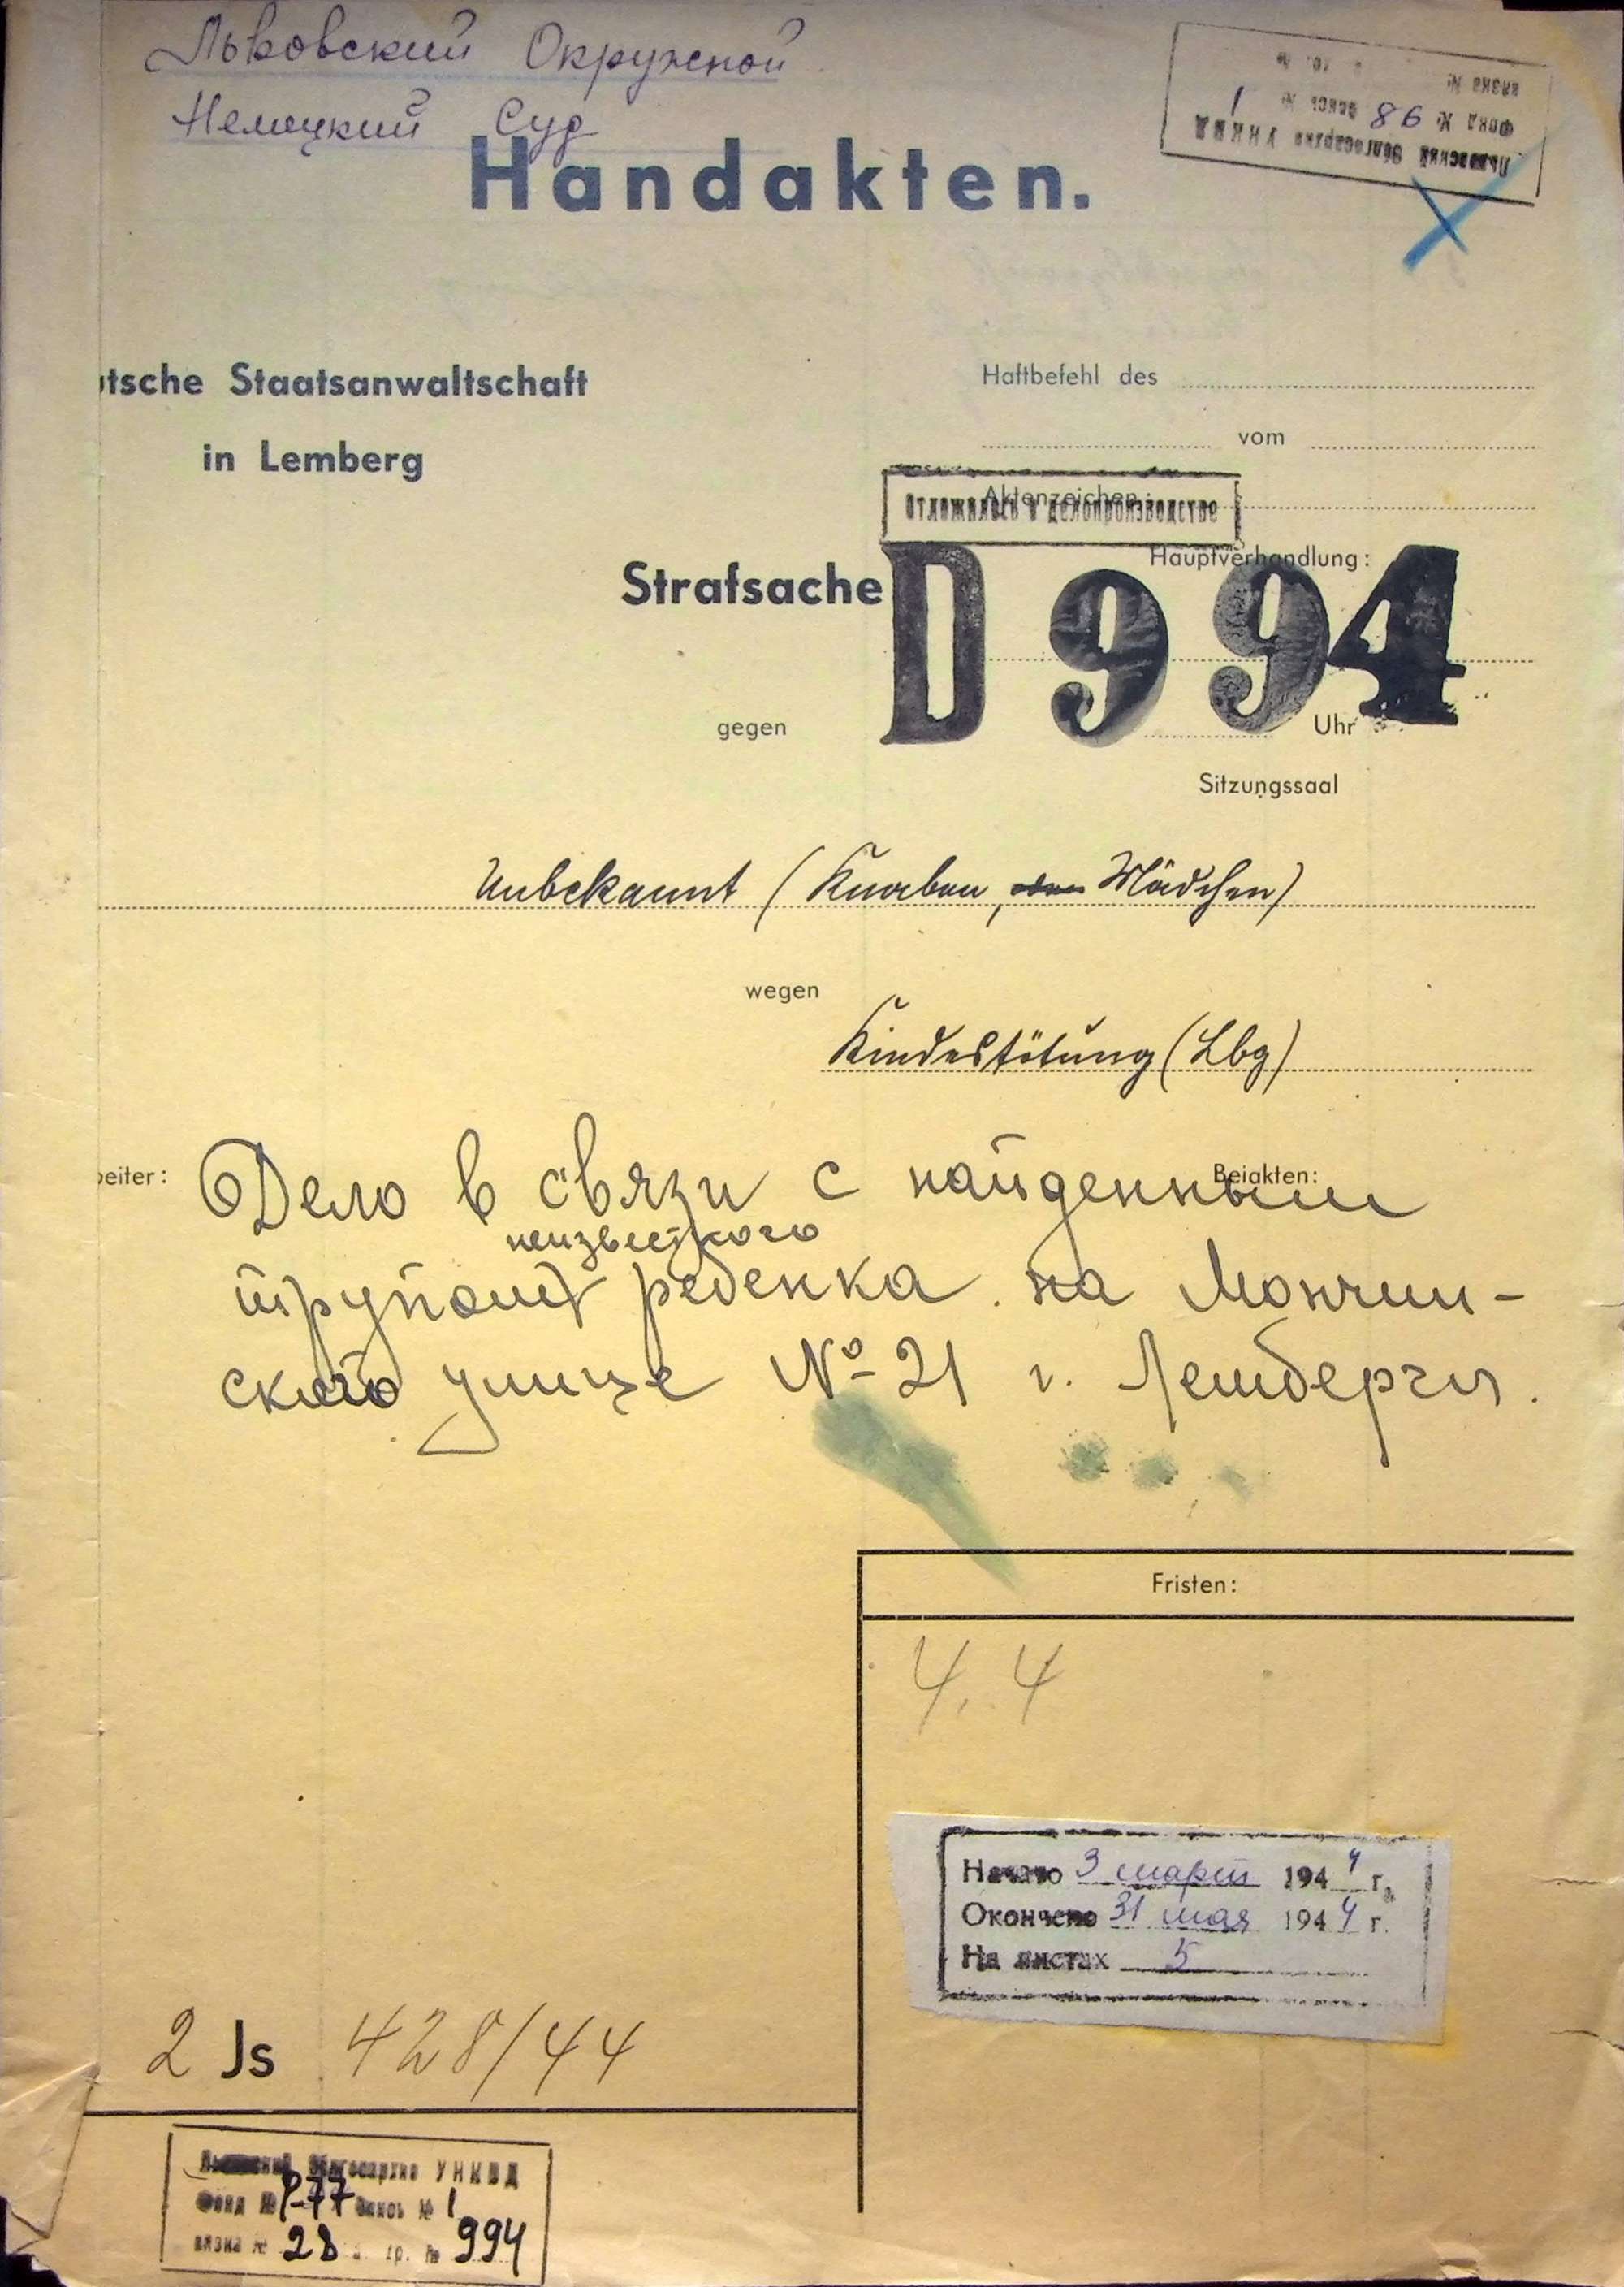 Львовский Окружной
Немецкий Суд
Handakten.
Львовский Облгосархив УНКВД
Фонд № 86 опись № 1
вязка №
tsche Staatsanwaltschaft
in Lemberg
Haftbefehl des
vom
Aktenzeichen:
Отложилось в делопроизводстве
Hauptverhandlung:
Strafsache
D 994
gegen
Uhr
Sitzungssaal
Unbekannt (Knaben, oder Mädchen)
wegen
Kindestötung (Lbg)
beiter:
Beiakten:
Дело в связи с найденным
неизвестного
трупом ребенка на Мончин-
улице № 21 г. Лемберга.
Fristen:
4.4
Начато 3 март 1944 г.
Окончено 31 мая 1944 г.
На листах 5
2 Js 428/44
Львовский Облгосархив УНКВД
Фонд № Р-77 опись № 1
вязка № 28 ед. хр. № 994